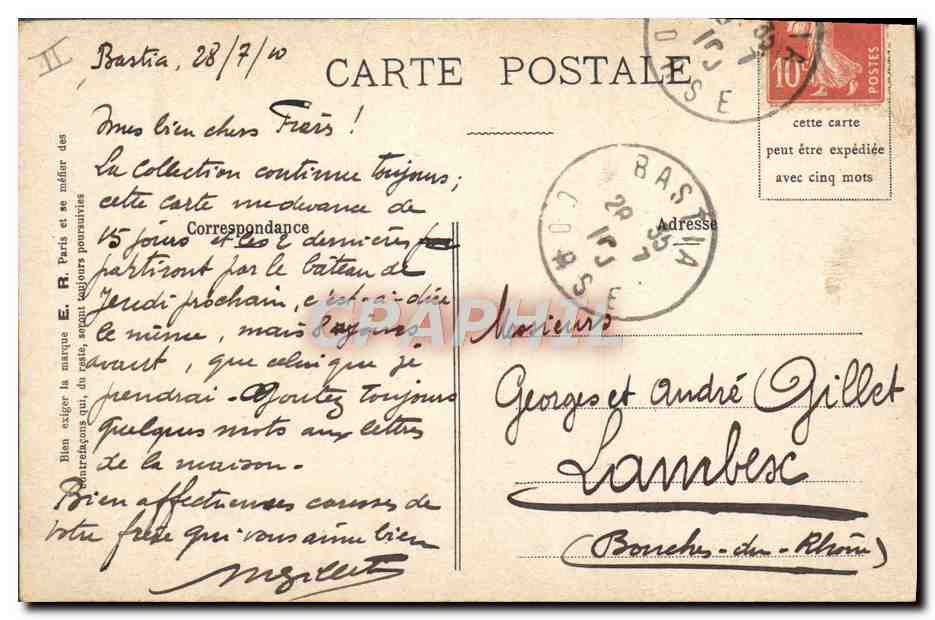 II
Bastia, 28/7/10
CARTE POSTALE
Mes bien chers Frères !
La Collection continue toujours;
cette carte me devance de
Correspondance
15 jours et les 2 dernières
partiront par le bâteau de
Jeudi prochain, c'est-à-dire
le même, mais 8 jours
avant, que celui que je
prendrai - Ajoutez toujours
quelques mots aux lettres
de la maison -
Bien affectueuses caresses de
votre frère qui vous aime bien
MGillet
Bien exiger la marque E. R. Paris et se méfier des
contrefaçons qui, du reste, seront toujours poursuivies
10c
POSTES
cette carte
peut être expédiée
avec cinq mots
BASTIA
CORSE
Adresse
Messieurs
Georges et André Gillet
Lambesc
(Bouches-du-Rhône)
CPAPHIL